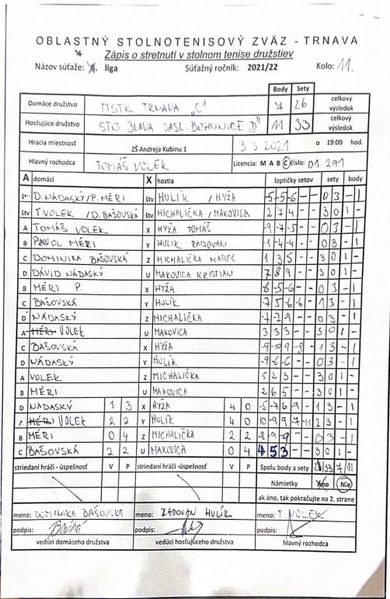 OBLASTNÝ STOLNOTENISOVÝ ZVÄZ - TRNAVA
Zápis o stretnutí v stolnom tenise družstiev
Názov súťaže: liga Súťažný ročník: 2021/22 Kolo: 11.
Body Sety
Domáce družstvo MSTK TRNAVA "C" 7 26 celkový výsledok
Hosťujúce družstvo STO BLAVA JASL. BOHUNICE "D" 11 39 celkový výsledok
Hracia miestnosť ZŠ Andreja Kubinu 1 o 19:00 hod.
Hlavný rozhodca TOMÁŠ VOLEK Licencia: M A B C číslo: 01 291
A domáci X hostia loptičky setov sety body
štv D. NÁDASKÝ/P. MÉRI štv HULÍK / HYŽA -5 -5 -6 - - 0 3 - 1
štv T. VOLEK / D. BAŠOVSKÁ štv MICHALIČKA / MAKOVICA 2 7 4 - - 3 0 1 -
A TOMÁŠ VOLEK X HYŽA TOMÁŠ -9 -7 -5 - - 0 3 - 1
B PAVOL MÉRI Y HULÍK RADOVAN -1 -4 -4 - - 0 3 - 1
C DOMINIKA BAŠOVSKÁ Z MICHALIČKA 1 3 5 - - 3 0 1 -
D DÁVID NÁDASKÝ U MAKOVICA KRISTIAN 7 8 9 - - 3 0 1 -
B MÉRI P. X HYŽA -6 -5 -6 - - 0 3 - 1
C BAŠOVSKÁ Y HULÍK 1 3 - 1
D NÁDASKÝ Z MICHALIČKA 0 3 - 1
A VOLEK U MAKOVICA 3 3 3 - - 3 0 1 -
C BAŠOVSKÁ X HYŽA 1 3 - 1
D NÁDASKÝ Y HULÍK -9 -6 -6 - - 0 3 - 1
A VOLEK Z MICHALIČKA 5 2 3 - - 3 0 1 -
B MÉRI U MAKOVICA 2 6 5 - - 3 0 1 -
D NÁDASKÝ 1 3 X HYŽA 4 0 1 3 - 1
VOLEK 2 2 Y HULÍK 4 0 2 3 - 1
B MÉRI 0 4 Z MICHALIČKA 2 2 -8 -9 -9 - - 0 3 - 1
C BAŠOVSKÁ 2 2 U MAKOVICA 0 4 4 5 3 3 0 1 -
striedaní hráči - úspešnosť V P striedaní hráči - úspešnosť V P Spolu body a sety 7 11
Námietky Áno Nie
ak áno, tak pokračujte na 2. strane
meno: DOMINIKA BAŠOVSKÁ meno: RADOVAN HULÍK meno: T. VOLEK
podpis: podpis: podpis:
vedúci domáceho družstva vedúci hosťujúceho družstva hlavný rozhodca